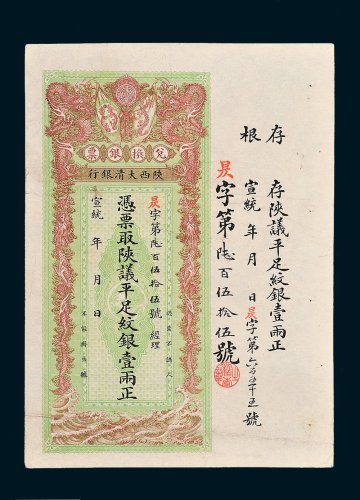 存根
存陝議平足紋銀壹兩正
宣統 年 月 日 昃字第六百五十五號
昃字第陸百伍拾伍號
兌換銀票
陝西大清銀行
昃字第陸百伍拾伍號 經理
憑票取陝議平足紋銀壹兩正
宣統 年 月 日